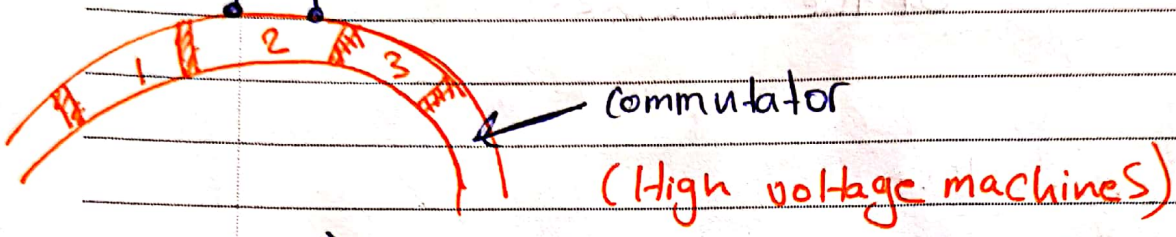 1 2 3
commutator
(High voltage machines)